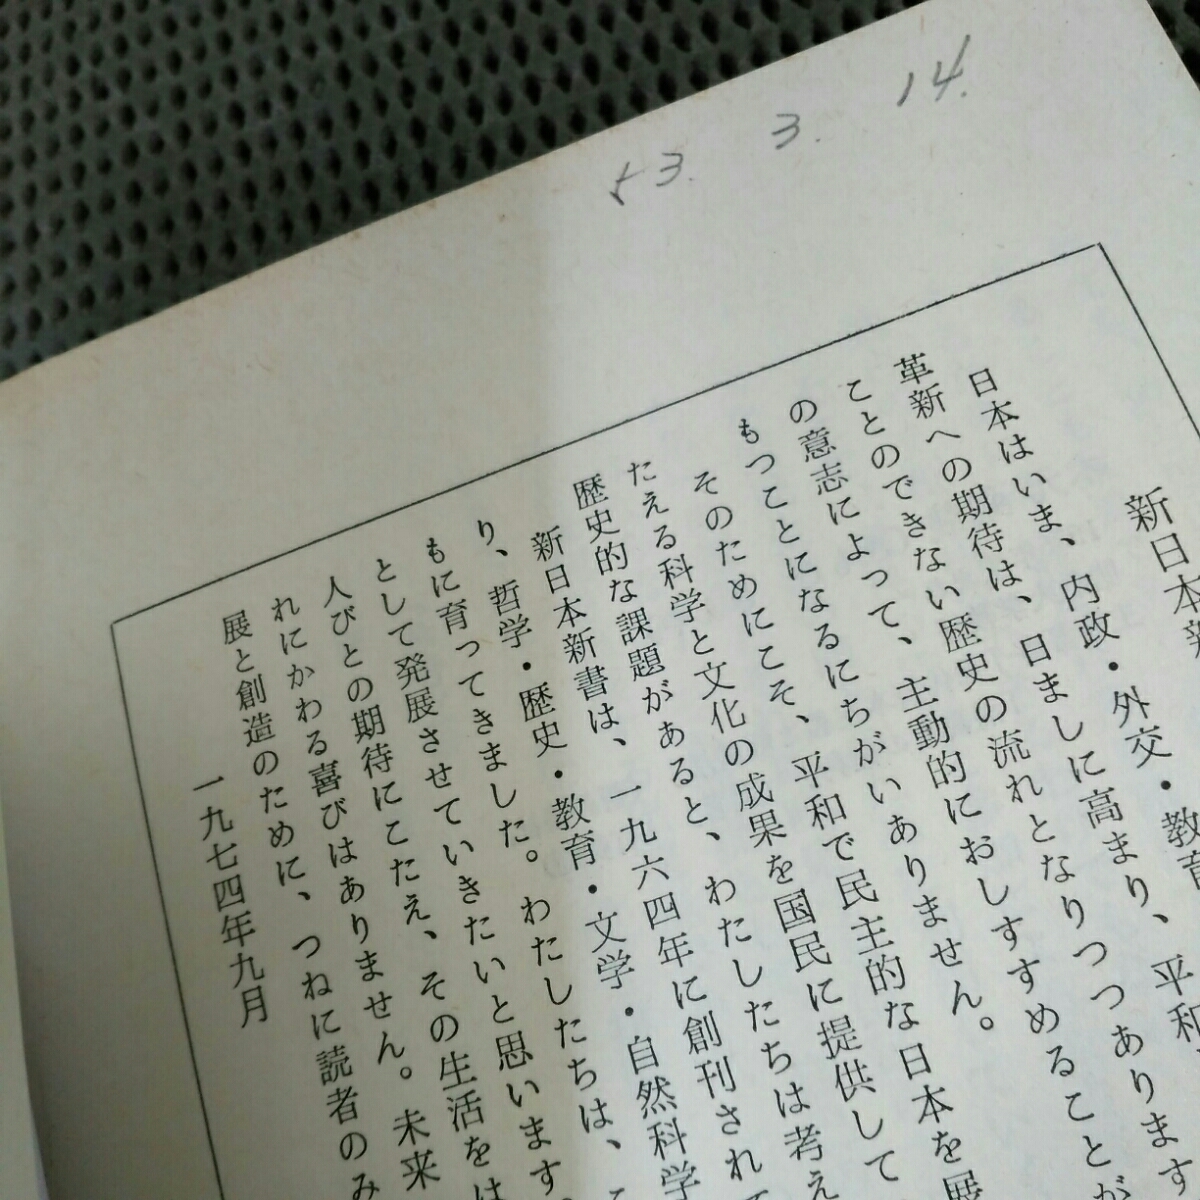 53. 3. 14.
新日本新
日本はいま、内政・外交・教育
革新への期待は、日ましに高まり、平和、
ことのできない歴史の流れとなりつつあります
の意志によって、主動的におしすすめることが
もつことになるにちがいありません。
そのためにこそ、平和で民主的な日本を展
たえる科学と文化の成果を国民に提供して
歴史的な課題があると、わたしたちは考え
新日本新書は、一九六四年に創刊されて
り、哲学・歴史・教育・文学・自然科学
もに育ってきました。わたしたちは、こ
として発展させていきたいと思います。
人びとの期待にこたえ、その生活をは
れにかわる喜びはありません。未来
展と創造のために、つねに読者のみ
一九七四年九月